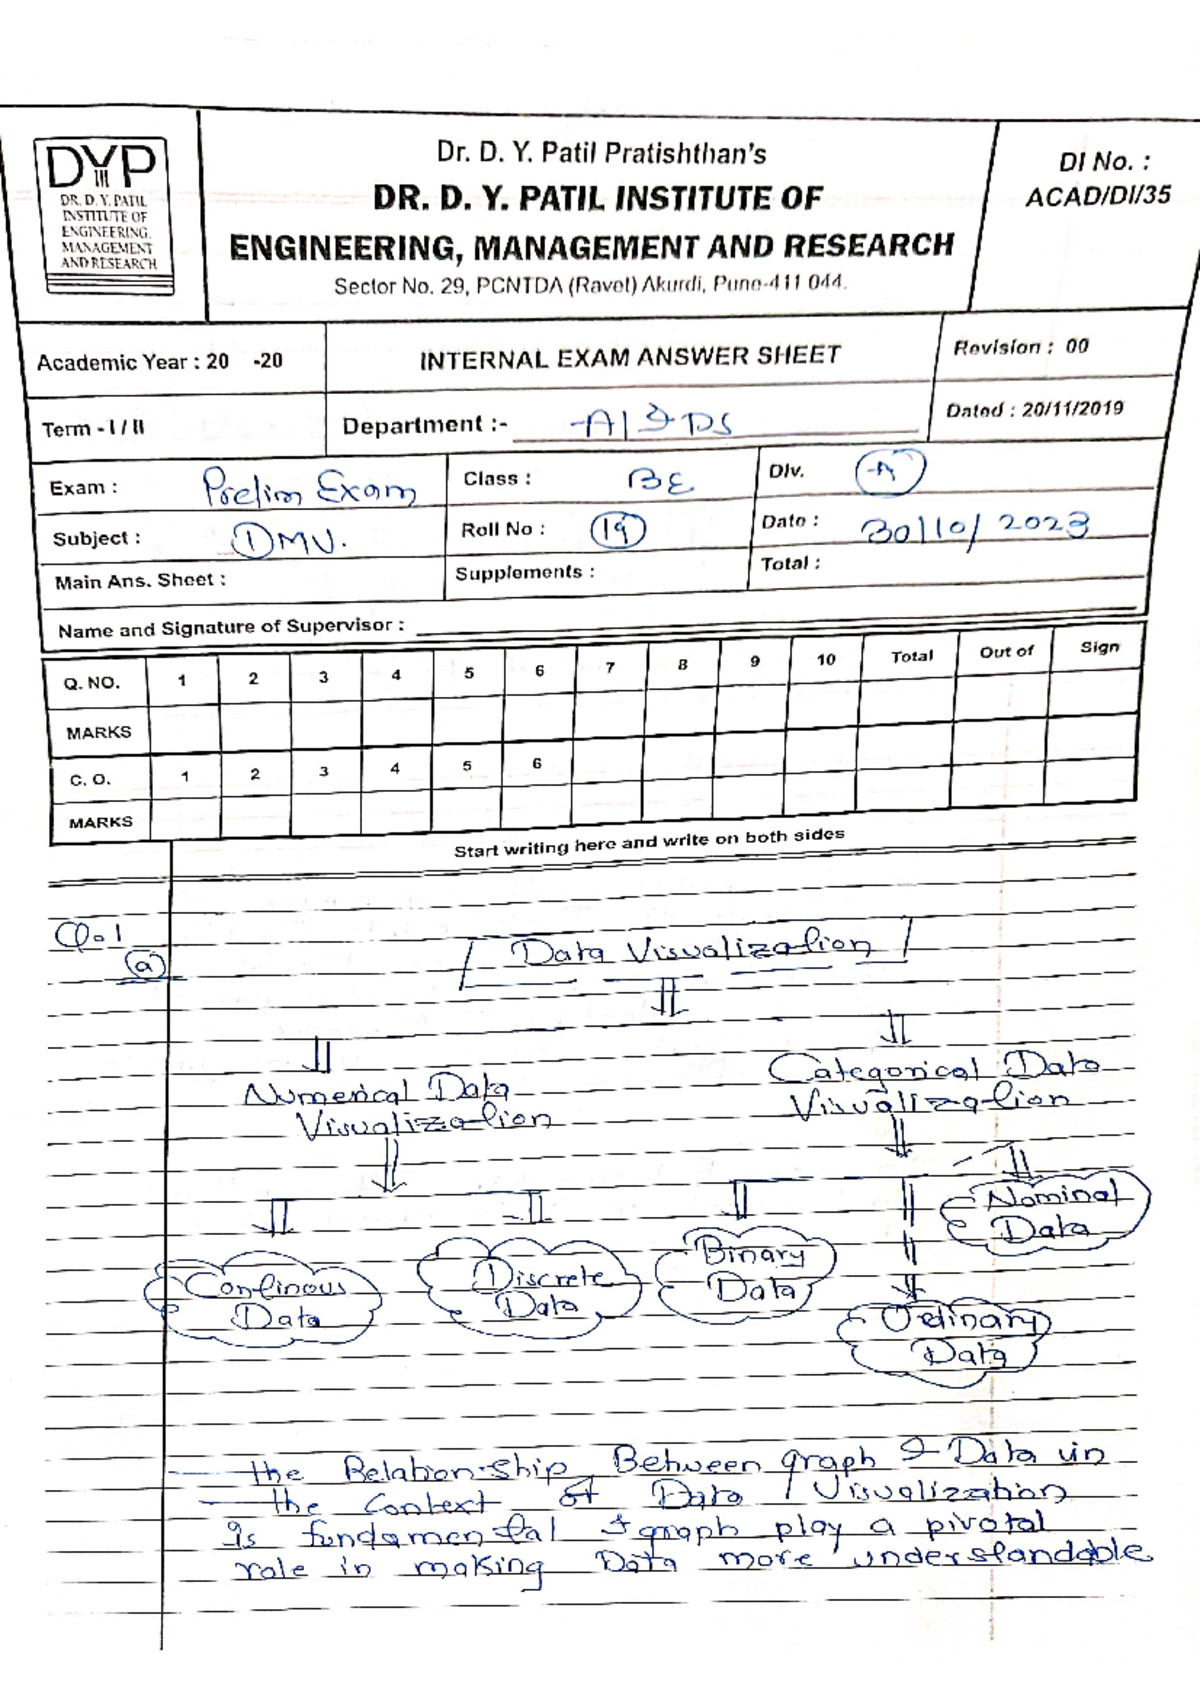 DYP
DR. D. Y. PATIL
INSTITUTE OF
ENGINEERING,
MANAGEMENT
AND RESEARCH
Dr. D. Y. Patil Pratishthan's
DR. D. Y. PATIL INSTITUTE OF
ENGINEERING, MANAGEMENT AND RESEARCH
Sector No. 29, PCNTDA (Ravet) Akurdi, Pune-411 044.
DI No. :
ACAD/DI/35
Academic Year : 20 -20
INTERNAL EXAM ANSWER SHEET
Revision : 00
Term - I / II
Department :- AI & DS
Dated : 20/11/2019
Exam : Prelim Exam
Class : BE
Div. A
Subject : DMV.
Roll No : 19
Date : 30/10/2023
Main Ans. Sheet :
Supplements :
Total :
Name and Signature of Supervisor :
Q. NO. 1 2 3 4 5 6 7 8 9 10 Total Out of Sign
MARKS
C. O. 1 2 3 4 5 6
MARKS
Start writing here and write on both sides
Q.1
(a)
Data Visualization
Numerical Data
Visualization
Categorical Data
Visualization
Nominal
Data
Binary
Data
Continous
Data
Discrete
Data
Ordinary
Data
the Relationship Between graph & Data in
the Context of Data Visualization
is fundamental & graph play a pivotal
role in making Data more understandable